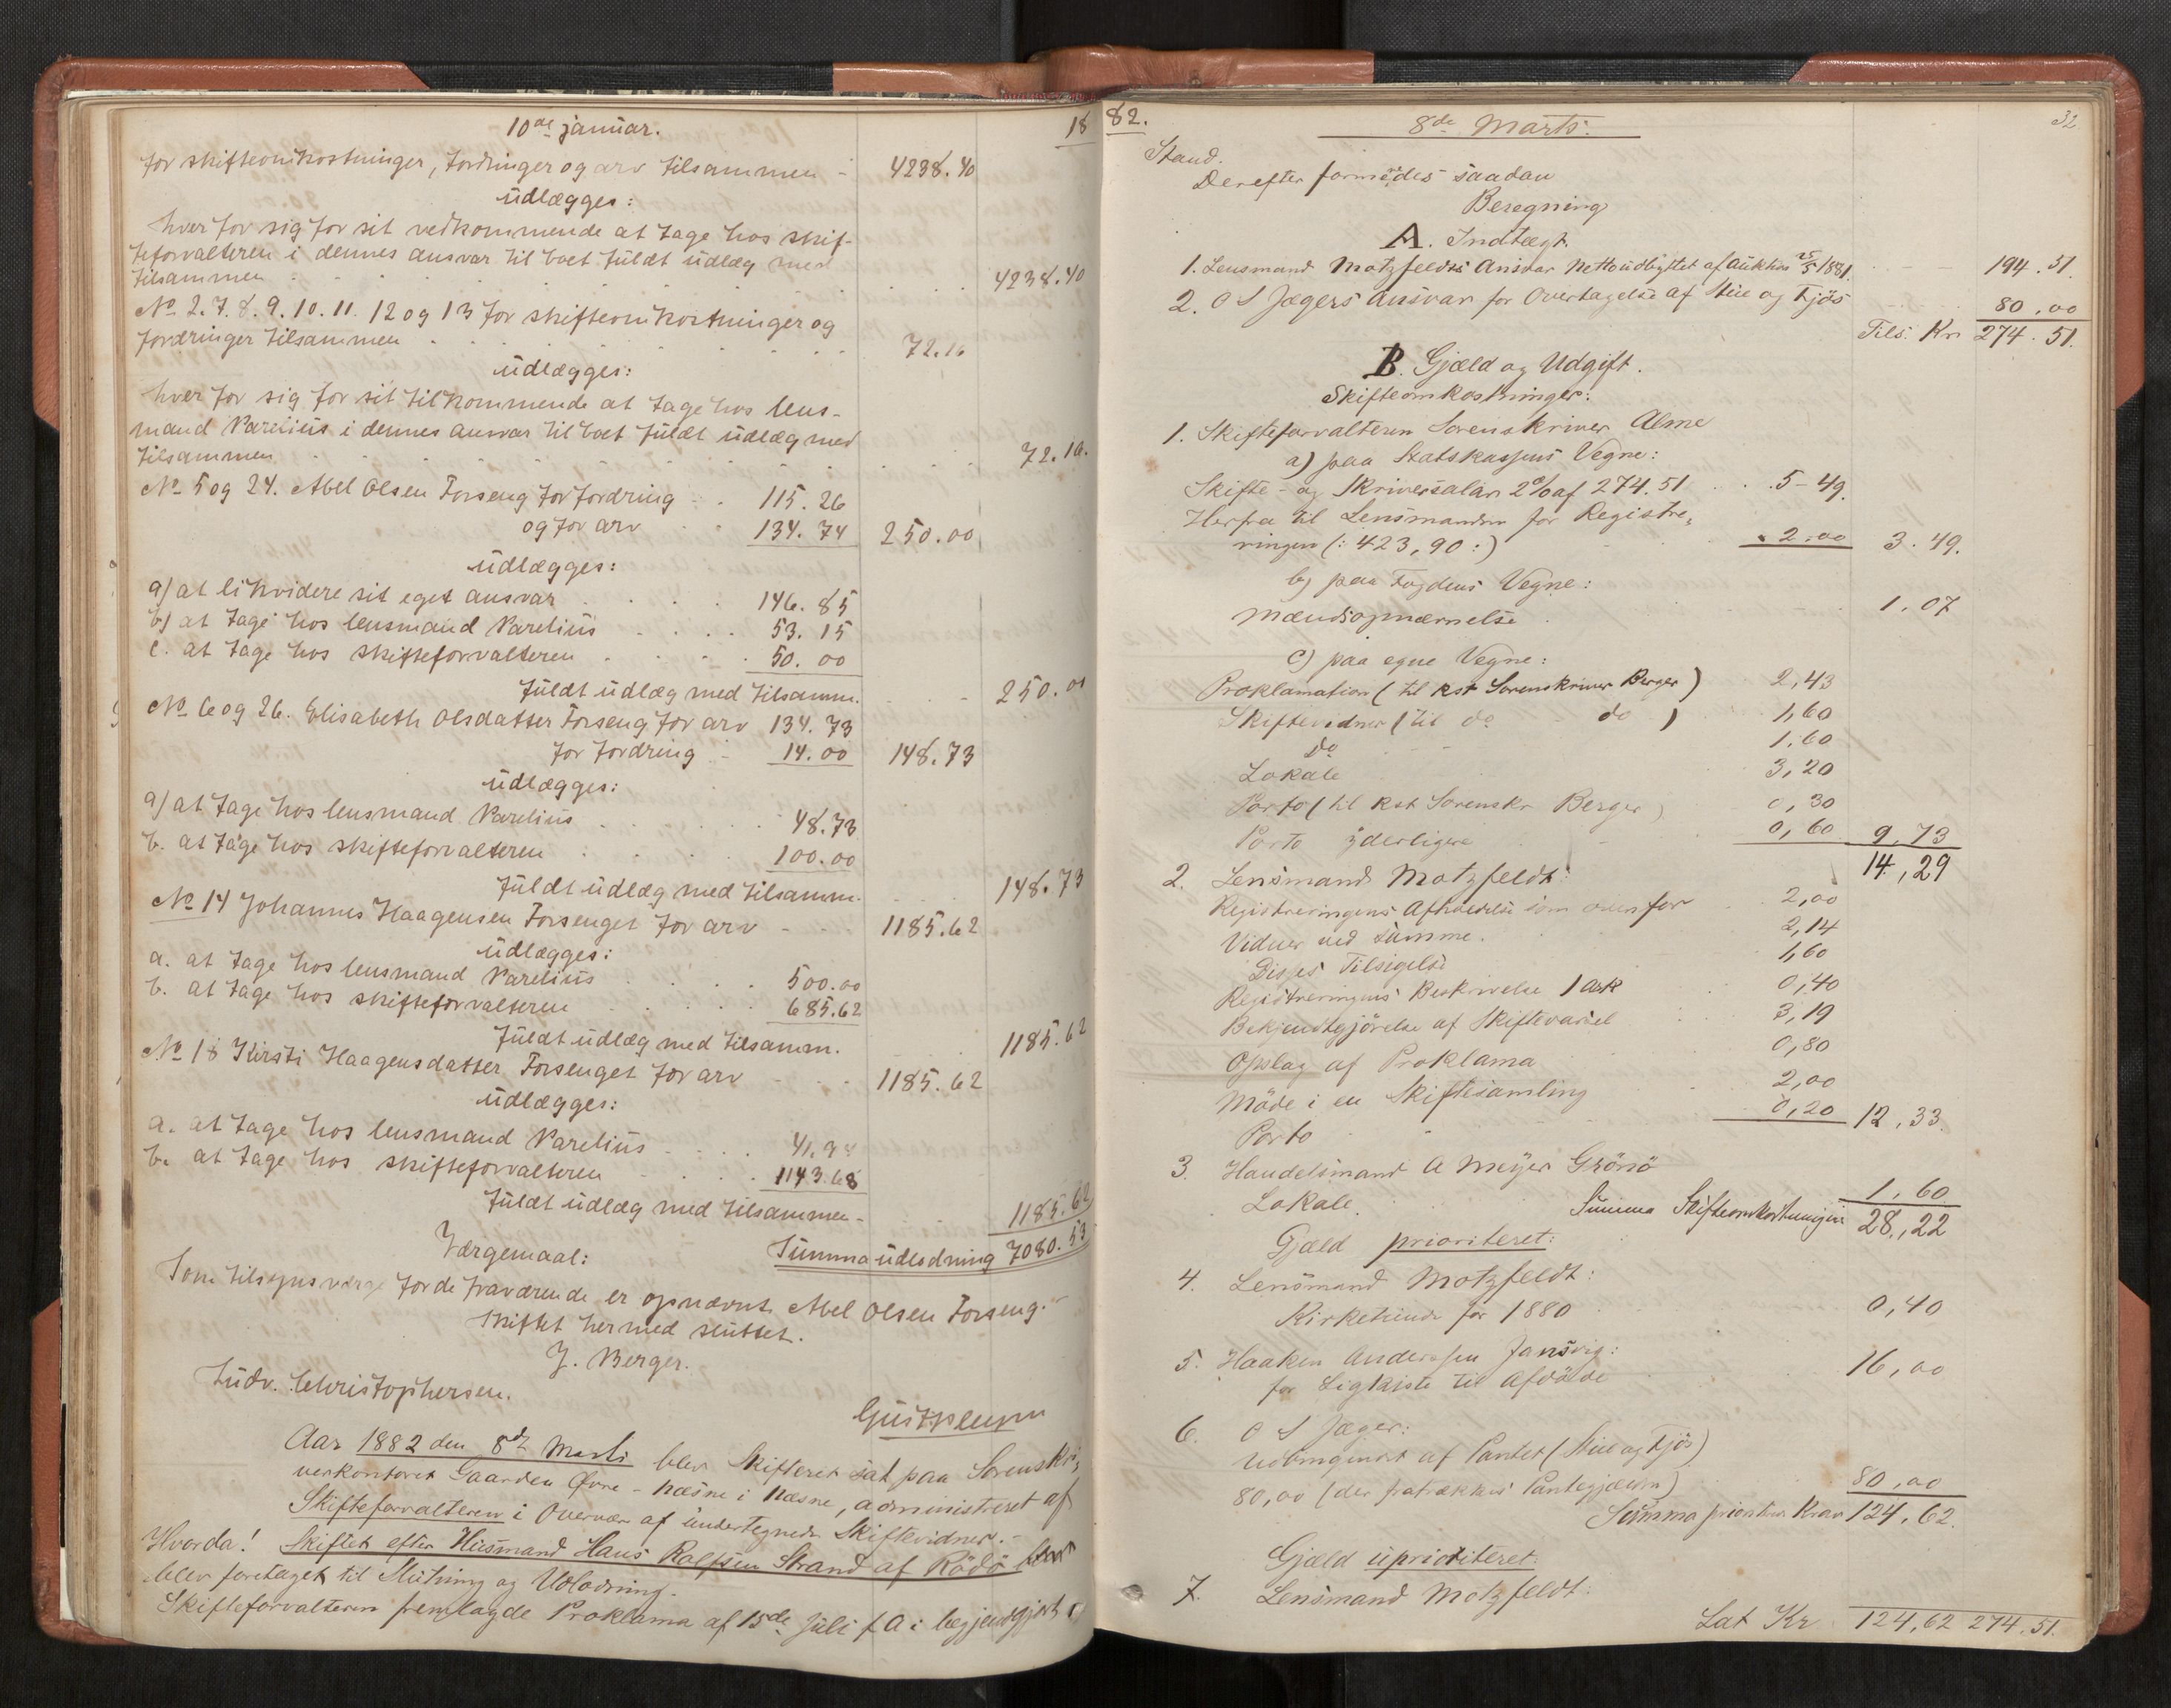 10de januar.
18
for skifteomkostninger, fordringer og arv tilsammen - 4238.40
udlægges:
hver for sig for sit vedkommende at tage hos skif-
teforvalteren i dennes ansvar til boet fuldt udlæg med
tilsammen . . . 4238.40
No 2. 7. 8. 9. 10. 11. 12 og 13 for skifteomkostninger og
fordringer tilsammen . . . 72.10
udlægges:
hver for sig for sit tilkommende at tage hos lens-
mand Parelius i dennes ansvar til boet fuldt udlæg med
tilsammen . . . 72.10.
No 5 og 24. Abel Olsen Forseng for fordring . 115.26
og for arv 134.74 250.00
udlægges:
a) at likvidere sit eget ansvar . . . 146.85
b) at tage hos lensmand Parelius . . . 53.15
c. at tage hos skifteforvalteren . . . 50.00
fuldt udlæg med tilsamm. . . 250.00
No 6 og 26. Elisabeth Olsdatter Forseng for arv 134.73
for fordring - 14.00 148.73
udlægges:
a) at tage hos lensmand Parelius . . . 48.73
b. at tage hos skifteforvalteren . . . 100.00
fuldt udlæg med tilsamm. . . 148.73
No 14 Johannes Haagensen Forsenget for arv - . . 1185.62
udlægges:
a. at tage hos lensmand Parelius . . . 500.00
b. at tage hos skifteforvalteren . . . 685.62
fuldt udlæg med tilsamm. . . 1185.62
No 18 Kirsti Haagensdatter Forsenget for arv - . . 1185.62
udlægges:
a. at tage hos lensmand Parelius . . . 41.94
b. at tage hos skifteforvalteren . . . 1143.68
fuldt udlæg med tilsammen - . . 1185.62
Summa udlodning 7080.53
Værgemaal:
Som tilsynsværge for de fraværende er opnævnt Abel Olsen Forseng.
Skiftet hermed sluttet.
J. Berger.
Ludv. Christophersen.
Aar 1882 den 8de Marts blev Skifteret sat paa Sorenskri-
verkontoret Gaarden Øvre-Næsne i Næsne, administreret af
Skifteforvalteren i Overvær af undertegnede Skiftevidner. -
Hvorda! Skiftet efter Husmand Hans Rolfsen Strand af Rödö
blev foretaget til Slutning og Udlodning.
Skifteforvalteren fremlagde Proklama af 15de Juli f A i begjendtgjort
82.
8de Marts.
32
Stand.
Derefter formödes saadan
Beregning
A. Indtægt.
1. Lensmand Motzfeldts Ansvar Nettoudbyttet af Auktion 25/5 1881. - - 194.51.
2. O S Jægers Ansvar for Overtagelse af Stue og Fjös 80.00
Tils. Kr 274.51.
B. Gjæld og Udgift.
Skifteomkostninger:
1. Skifteforvalteren Sorenskriver Alme
a) paa Statskassens Vegne:
Skifte- og Skriversalær 2% af 274.51 . . 5-49.
Herfra til Lensmanden for Registre-
ringen (: 423,90 :) 2.00 3.49.
b) paa Fogdens Vegne:
Mændsopnævnelse . 1.07
c) paa egne Vegne:
Proklamation (til kst Sorenskriver Berger) 2,43
Skiftevidner (til do do ) 1,60
Do 1,60
Lokale 3,20
Porto (til kst Sorenskr Berger) 0,30
Porto yderligere 0,60 9,73
14,29
2. Lensmand Motzfeldt:
Registreringens Afholdelse som ovenfor 2,00
Vidner ved samme. 2,14
Disses Tilsigelse 1,60
Registreringens Beskrivelse 1 Ark 0,40
Bekjendtgjörelse af Skiftevarsel 3,19
Opslag af Proklama 0,80
Möde i en Skiftesamling 2,00
Porto 0,20 12,33.
3. Handelsmand A Meyer Grönö
Lokale. 1,60
Summa Skifteomkostningen 28,22
Gjæld prioriteret:
4. Lensmand Motzfeldt:
Kirketiende for 1880 0,40
5. Haaken Andersen Jansvig:
for Ligkiste til Afdöde 16,00
6. O S Jæger:
Udbringende af Pantet (Stue og Fjös)
80,00 (der fratrækkes Pantegjælden) 80,00
Summa prioriteret Krav 124,62.
Gjæld uprioriteret:
7. Lensmand Motzfeldt:
Lat Kr 124,62 274.51.